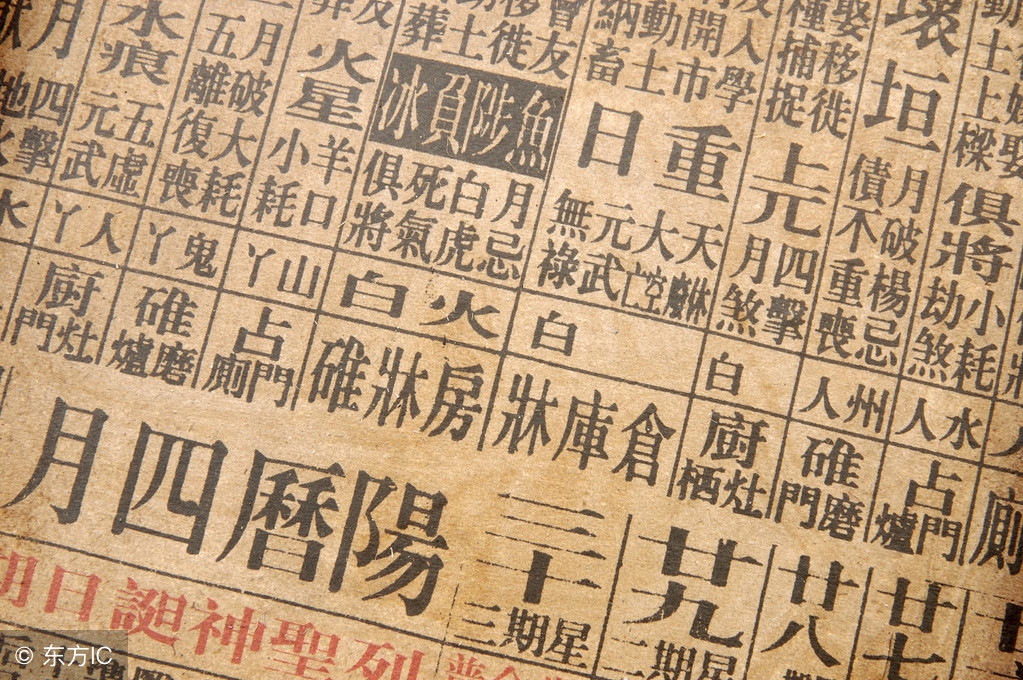 動土
上樑
俱將
小耗
劫煞
壞垣
月破楊忌
債不重喪
娶移徙
種捕捉
上元
四擊
月煞
開人學
納動市
畜土
重日
天大元無
痳空武祿
會友
移徙
動土
葬
魚陟負冰
月忌
白虎
死氣
俱將
火星
羊口
小耗
月破大耗
五離復喪
水痕
五虛
元武
月
四擊
地火
水人
州人
白
白
火白
山丫
鬼丫
人丫
水
廁
占門爐
碓磨門
廚灶栖
倉庫牀
房牀碓
占門廁
碓磨爐
廚灶門
廿七
廿八
廿九
星期二
三十
星期三
陽曆四月
列聖神誕日期
© 东方IC